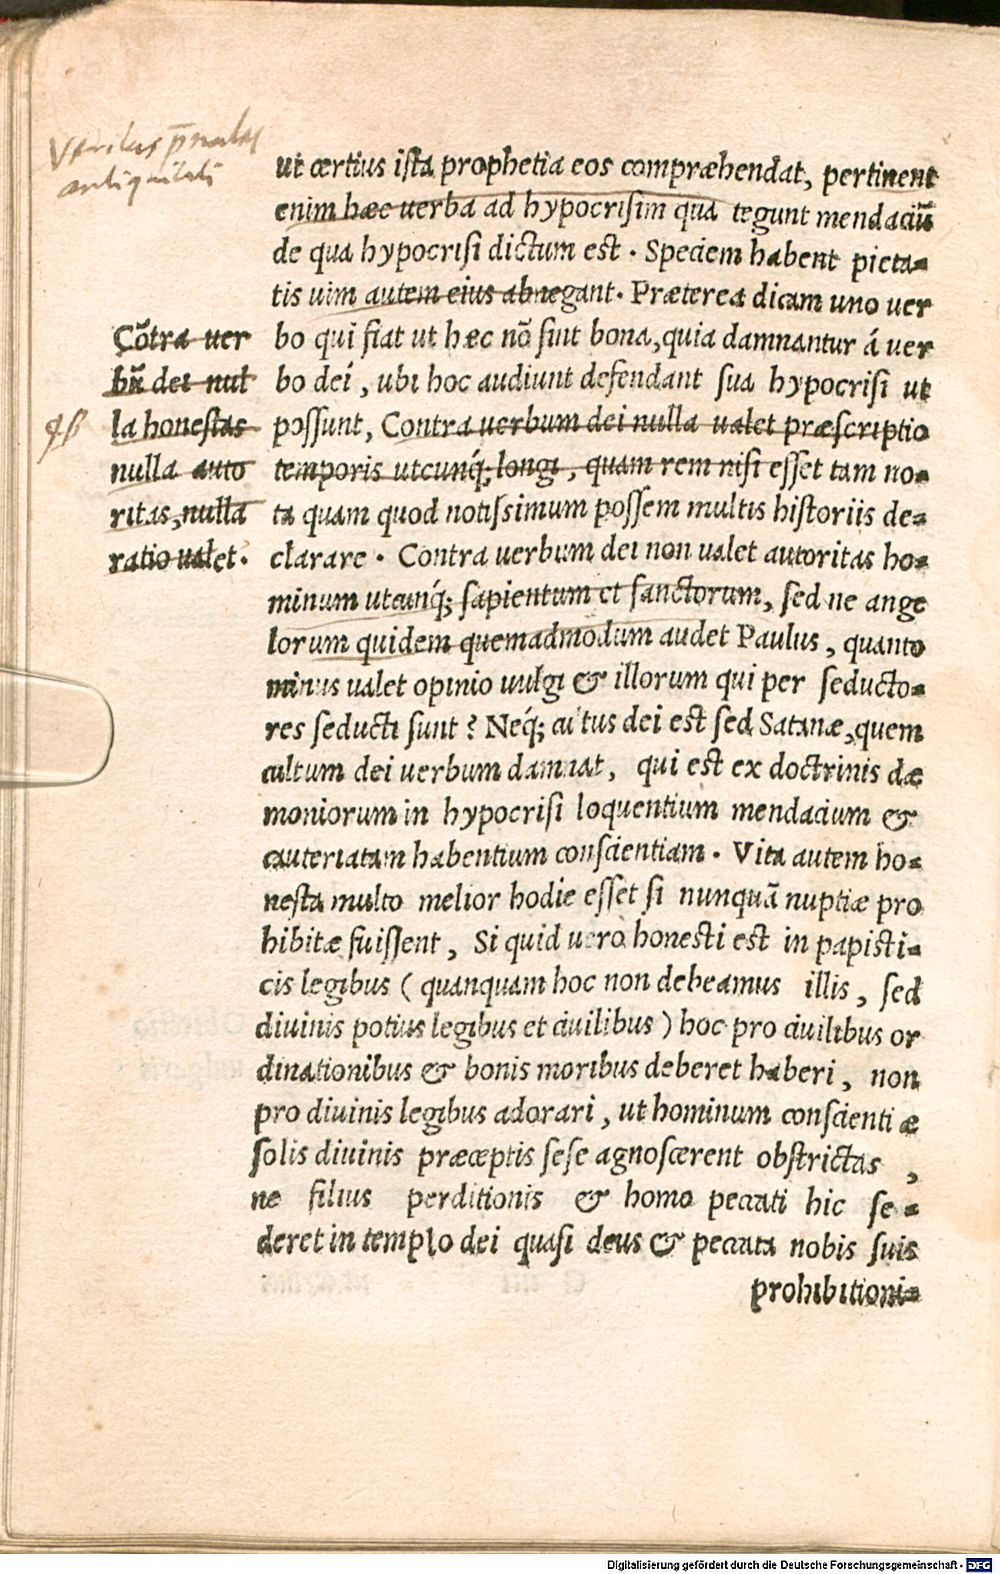 Veritas p̄ualet
antiquitati
ut certius ista prophetia eos compræhendat, pertinent
enim hæc uerba ad hypocrisim qua tegunt mendaciū
de qua hypocrisi dictum est. Speciem habent pieta=
tis uim autem eius abnegant. Præterea dicam uno uer
bo qui fiat ut hæc nō sint bona, quia damnantur á uer
bo dei, ubi hoc audiunt defendant sua hypocrisi ut
possunt, Contra uerbum dei nulla ualet præscriptio
temporis utcunq́; longi, quam rem nisi esset tam no=
ta quam quod notissimum possem multis historiis de=
clarare. Contra uerbum dei non ualet autoritas ho=
minum utcunq́; sapientum et sanctorum, sed ne ange
lorum quidem quemadmodum audet Paulus, quanto
minus ualet opinio uulgi & illorum qui per seducto=
res seducti sunt? Neq́; cultus dei est sed Satanæ, quem
cultum dei uerbum damnat, qui est ex doctrinis dæ
moniorum in hypocrisi loquentium mendacium &
cauteriatam habentium conscientiam. Vita autem ho=
nesta multo melior hodie esset si nunquā nuptiæ pro
hibitæ fuissent, Si quid uero honesti est in papisti=
cis legibus (quanquam hoc non debeamus illis, sed
diuinis potius legibus et ciuilibus) hoc pro ciuilibus or
dinationibus & bonis moribus deberet haberi, non
pro diuinis legibus adorari, ut hominum conscientiæ
solis diuinis præceptis sese agnoscerent obstrictas,
ne filius perditionis & homo peccati hic se=
deret in templo dei quasi deus & peccata nobis suis
prohibitioni=
Cōtra uer
bū dei nul
la honestas
nulla auto
ritas, nulla
ratio ualet.
Digitalisierung gefördert durch die Deutsche Forschungsgemeinschaft - DFG